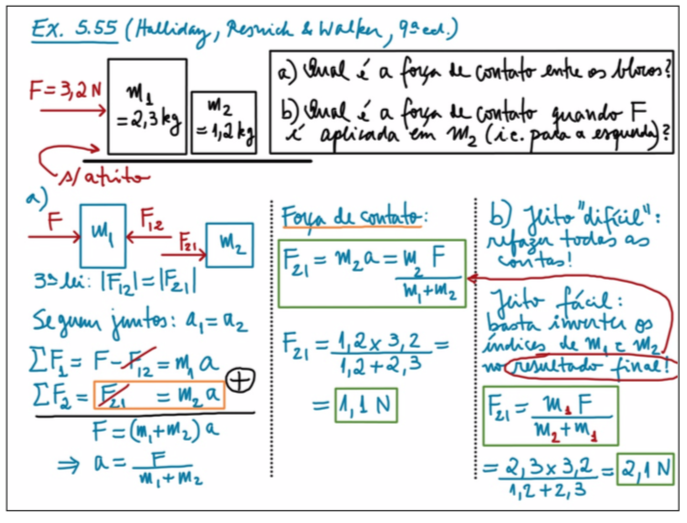 Ex. 5.55 (Halliday, Resnick & Walker, 9ª ed.)
F = 3,2 N
m₁
= 2,3 kg
m₂
= 1,2 kg
s/ atrito
a) Qual é a força de contato entre os blocos?
b) Qual é a força de contato quando F
é aplicada em m₂ (i.e. para a esquerda)?
a)
F
m₁
F₁₂
F₂₁
m₂
3ª lei: |F₁₂| = |F₂₁|
Seguem juntos: a₁ = a₂
∑F₁ = F - F₁₂ = m₁ a
∑F₂ = F₂₁ = m₂ a
+
F = (m₁ + m₂) a
⇒ a = F / (m₁ + m₂)
Força de contato:
F₂₁ = m₂ a = m₂ F / (m₁ + m₂)
F₂₁ = 1,2 x 3,2 / (1,2 + 2,3) =
= 1,1 N
b) Jeito "difícil":
refazer todas as
contas!
Jeito fácil:
basta inverter os
índices de m₁ e m₂
no resultado final!
F₂₁ = m₁ F / (m₂ + m₁)
= 2,3 x 3,2 / (1,2 + 2,3) = 2,1 N